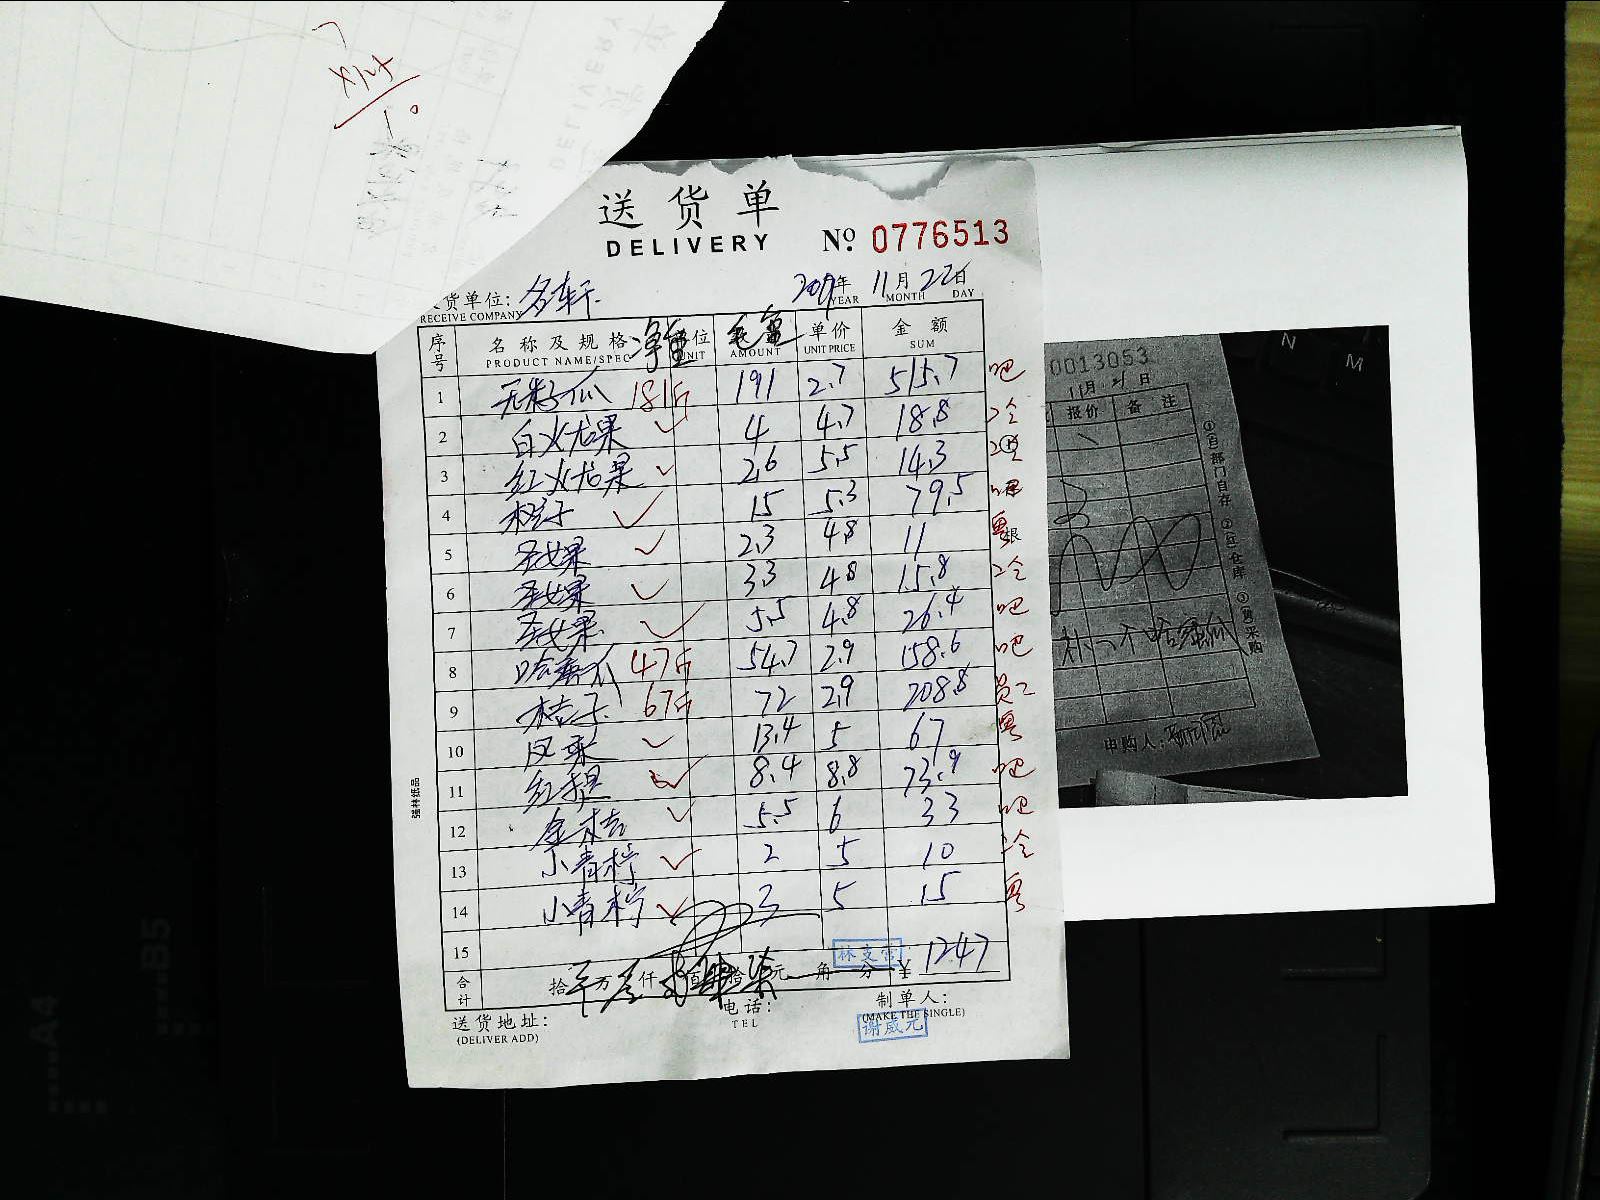 送货单
DELIVERY № 0776513
货单位: 名轩 2017年 11月 22日
RECEIVE COMPANY YEAR MONTH DAY
序号 名称及规格 净重 单位 毛重 单价 金额
PRODUCT NAME/SPEC UNIT AMOUNT UNIT PRICE SUM
1 无籽瓜 181斤 191 2.7 515.7 吧
2 白火龙果 ✓ 4 4.7 18.8 冷
3 红火龙果 ✓ 2.6 5.5 14.3
4 橙子 ✓ 15 5.3 79.5
5 圣女果 ✓ 2.3 4.8 11 粤
6 圣女果 ✓ 3.3 4.8 15.8 冷
7 圣女果 ✓ 5.5 4.8 26.4 吧
8 哈密瓜 47斤 54.7 2.9 158.6 吧
9 桔子 67斤 72 2.9 208.8 员工
10 凤梨 ✓ 13.4 5 67 粤
11 红提 ✓ 8.4 8.8 73.9 吧
12 金桔 ✓ 5.5 6 33 吧
13 小青柠 ✓ 2 5 10 冷
14 小青柠 ✓ 3 5 15 粤
15
林支营
合计 拾 万 仟 佰 拾 元 角 分 ¥ 1247
送货地址: 电话: 制单人:
(DELIVER ADD) TEL (MAKE THE SINGLE)
谢威元
强林纸品
0013053
11月 21日
报价 备注
①白部门自存 ②红仓库 ③黄采购
补一个哈密瓜
申购人:
DELIVERY
A4
B5
N
M